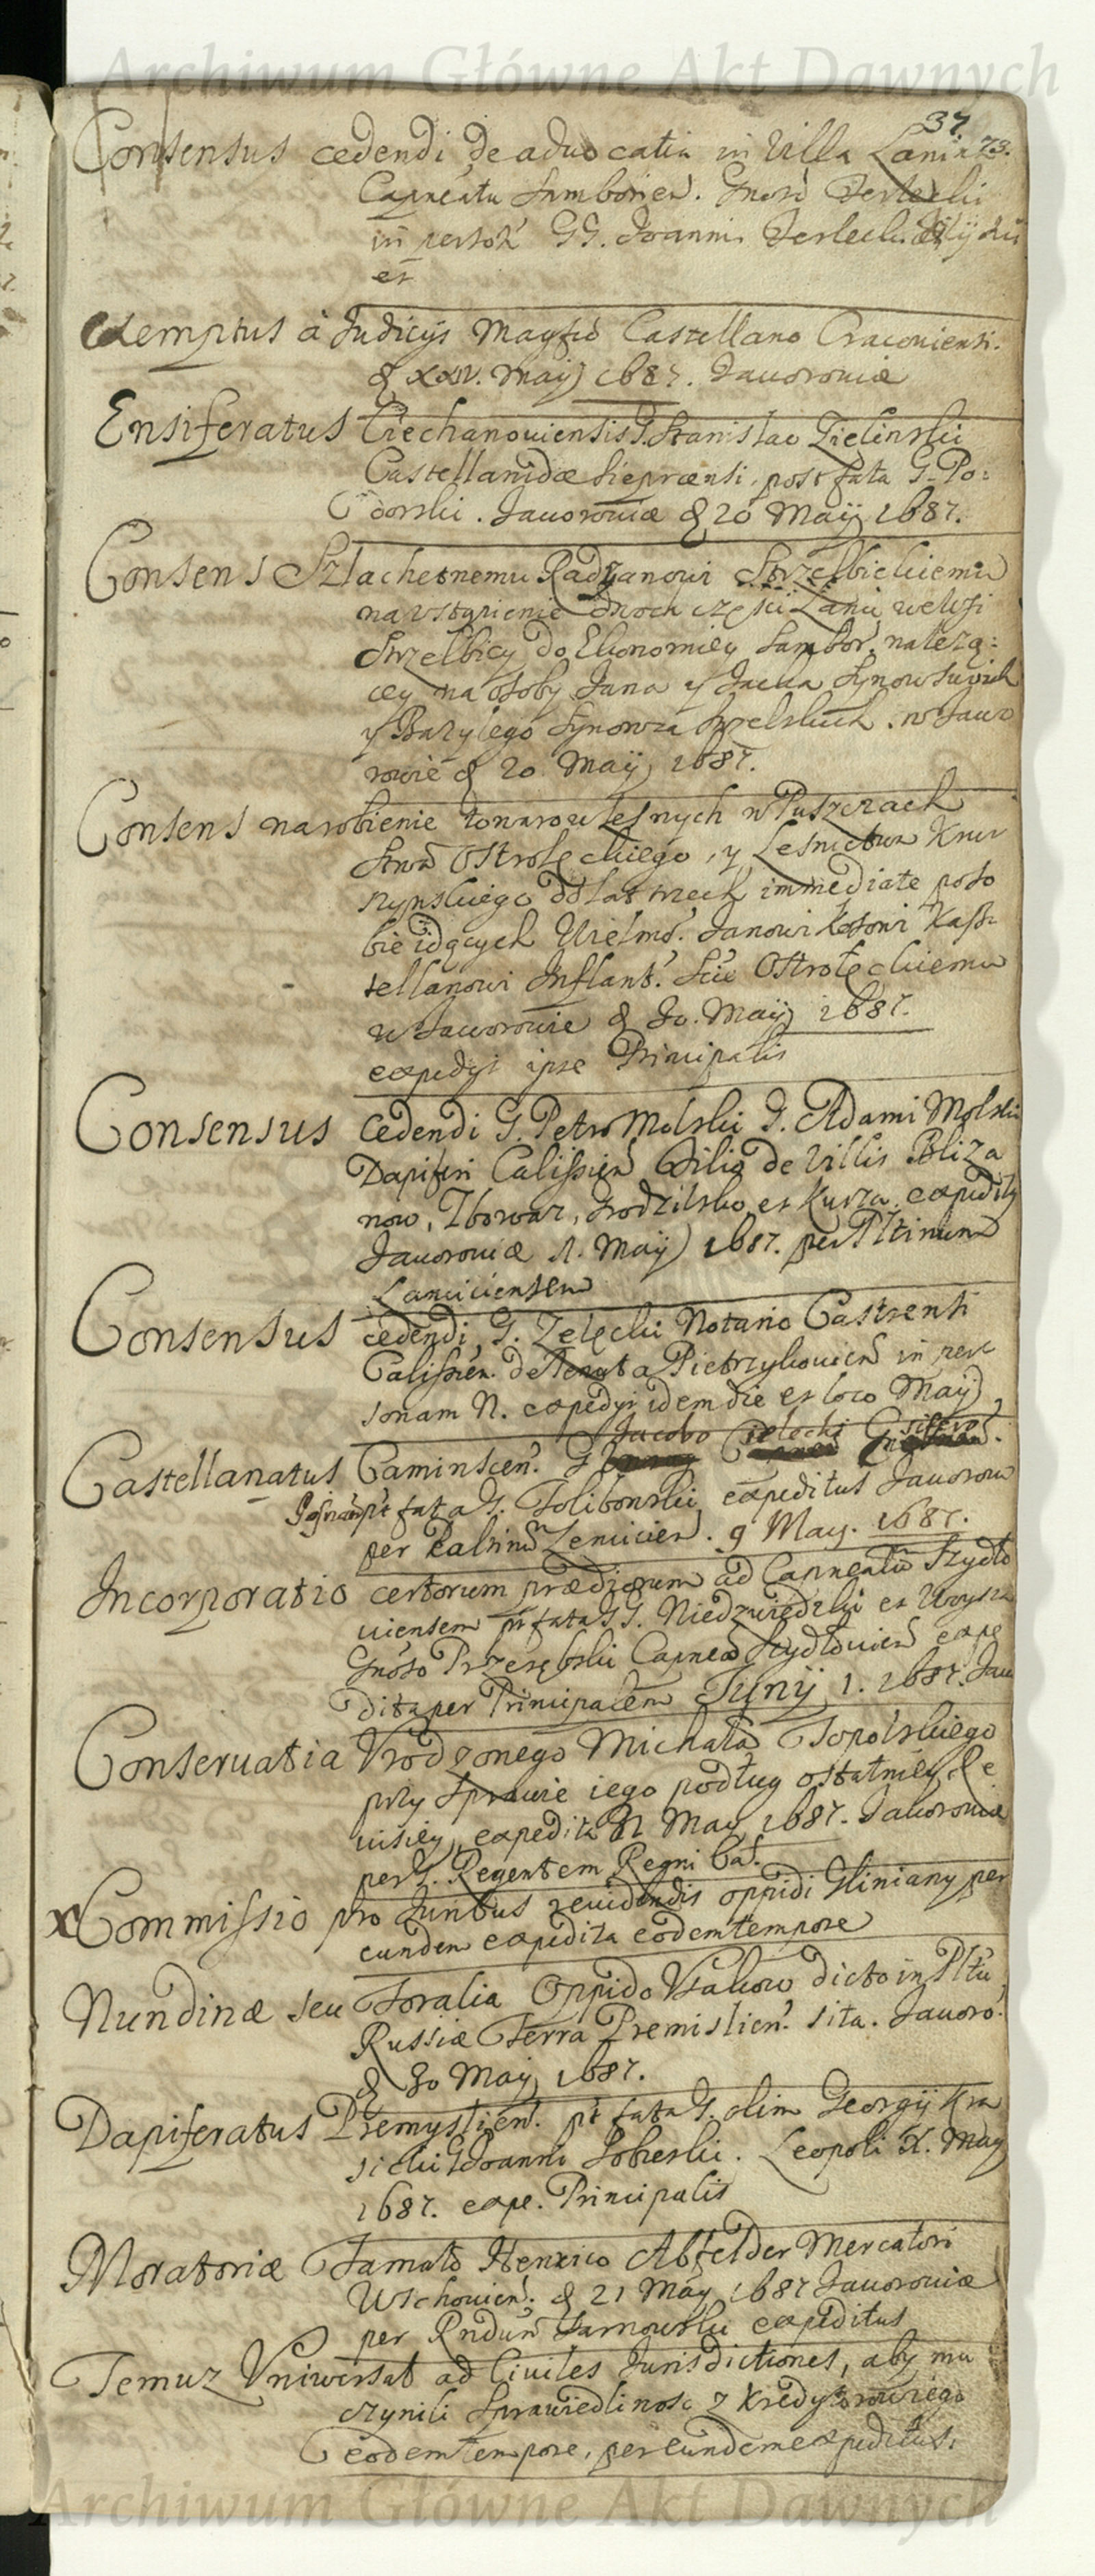 Archiwum Główne Akt Dawnych
37.
73.
Consensus cedendi de aduocatia in Villa
Capneatu Samborien. Gnoso Terlecki
in person GG. Joannis Terlecki
et
Exemptus à Judicijs Magfco Castellano Cracouiensi.
d XXIV. Maij 1687. Jauorouiæ
Ensiferatus Ciechanouiensis G. Stanislao Zielinski
Castellanidæ Sieprcensi, post fata G. Po:
dorski. Jauorouiæ d 20 Maij 1687.
Consens Szlachetnemu Radzanowi Strzelbickiemu
na vstąpienie dwoch części Łanu we wsi
Strzelbicy do Ekonomiey Sambor. należą:
cey na osoby Jana y Jacka Synow swoich
y Bazylego Synowca Strzelskich. w Jawo
rowie d 20 Maij 1687.
Consens na robienie towarow leśnych w Puszczach
Stwa Ostrołęckiego, y Lesnictwa Kru
szynskiego do lat trzech immediate po so
bie idących Wielmo. Janowi Kosowi Kasz
tellanowi Inflant. Scie Ostrołęckiemu
w Jaworowie d 30. Maij 1687.
expedyt ipse Principalis
Consensus cedendi G. Petro Molski G. Adami Molski
Dapiferi Calissien Filio de Villis Bliza
now, Zborow, Grodzisko et Kurza expedity
Jauorouiæ Maij 1687. per Pltinum
Lanciciensem
Consensus cedendi G. Zelęcki Notario Castrensi
Calissien. de Aduocatia Pietrzykouien in per
sonam N. expedyt idem die et loco Maij
Jacobo Cielecki
Castellanatus Caminscen. G
Posnan pt fata G. Tolibowski expeditus Jauorou
per Palnum Lencicien. 9 May. 1687.
Incorporatio certorum prædiorum ad Capneatu Szydło
uiensem pt fata GG. Niedzwiedzki et
Gnoso Przerębski Capneo Szydłouien expe
dita per Principalem Junij 1. 1687. Jau
Conseruatia Vrodzonego Michała Topolskiego
przy Sprawie iego podług ostatniey Re
uisiey, expedita 21 May 1687. Jauorouiæ
per G. Regentem Regni Cal.
x Commissio pro Juribus reuidendis oppidi Gliniany per
eundem expedita eodem tempore
Nundinæ seu Foralia Oppido Vsakow dicto in Pltu
Russiæ Terra Premislien. sita. Jauoro:
d 30 Maij 1687.
Dapiferatus Premyslien. pt fata G. olim Georgij Kra
sicki G. Joanni Sobieski. Leopoli X. May
1687. expe. Principalis
Moratoriæ Famato Henrico Abfelder Mercatori
Wschouien. d 21 May 1687 Jauorouiæ
per Rndum Tarnowski expeditus
Temuz Vniwersał ad Ciuiles Jurisdictiones, aby mu
czynili Sprawiedliwosc z Kredytorow iego
eodem tempore, per eundem expeditus.
Archiwum Główne Akt Dawnych